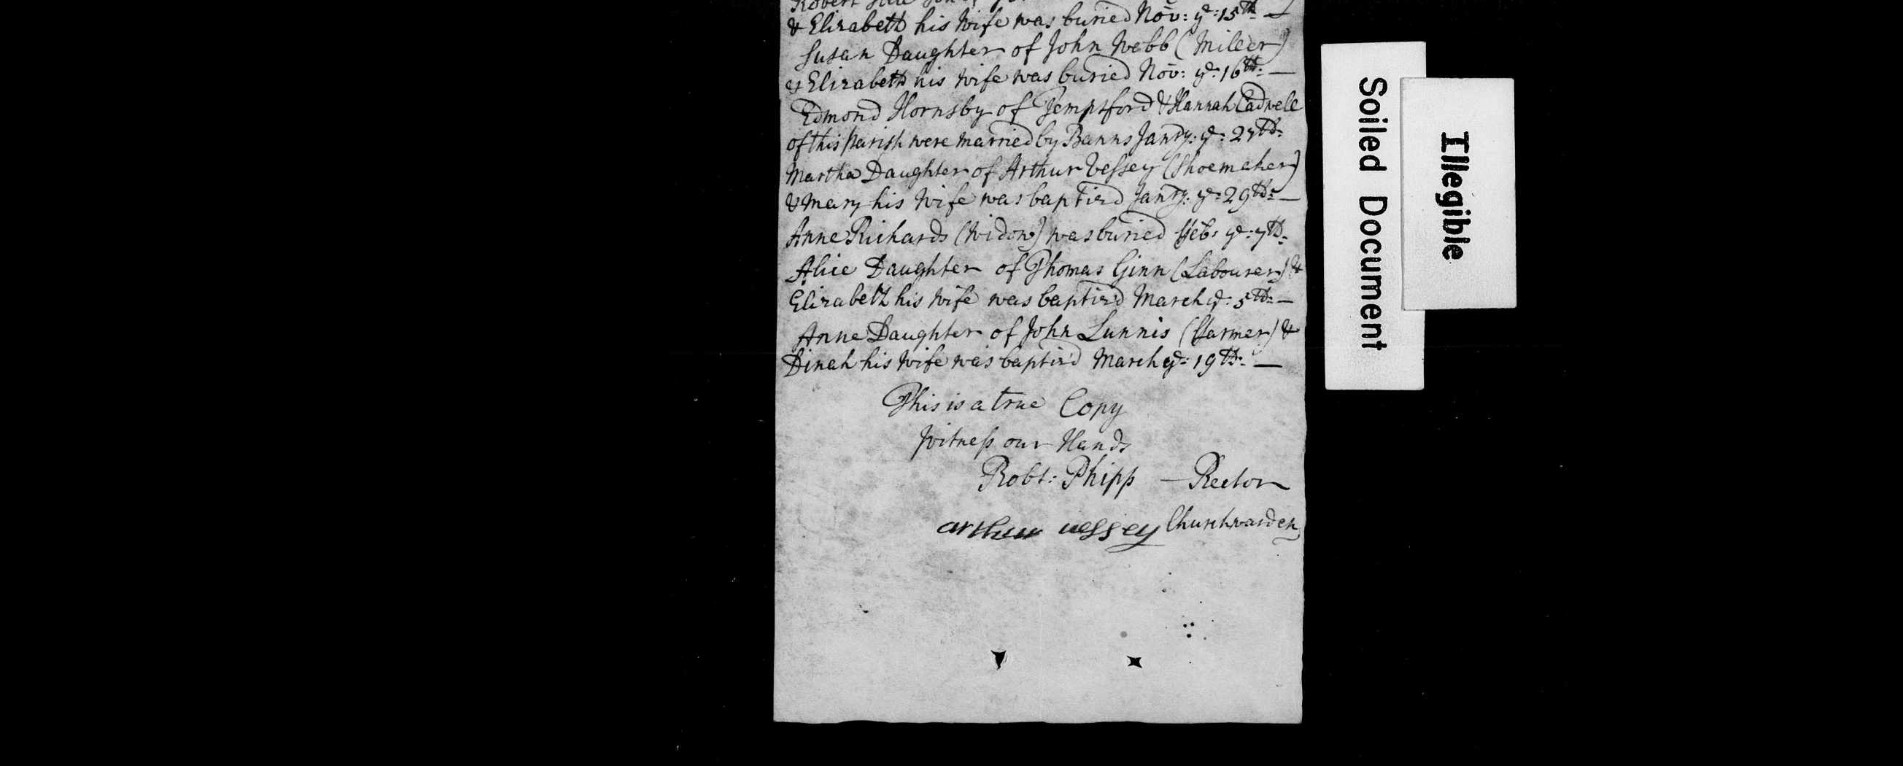 & Elizabeth his Wife was buried Nov: ye: 15th —
Susan Daughter of John Webb (Miller)
& Elizabeth his Wife was buried Nov: ye: 16th: —
Edmond Hornsby of Tempsford & Hannah Cadwell
of this Parish were married by Banns Janry: ye: 27th:
Martha Daughter of Arthur Vessey (Shoemaker)
& Mary his Wife was baptiz'd Janry: ye: 29th: —
Anne Richards (Widow) was buried Feb: ye: 7th:
Alice Daughter of Thomas Ginn (Labourer) &
Elizabeth his Wife was baptiz'd March ye: 5th: —
Anne Daughter of John Lunnis (Farmer) &
Dinah his Wife was baptiz'd March ye: 19th: —
This is a true Copy
Witness our Hands
Robt: Phipp — Rector
arthur vessey Churchwarden
Soiled Document
Illegible